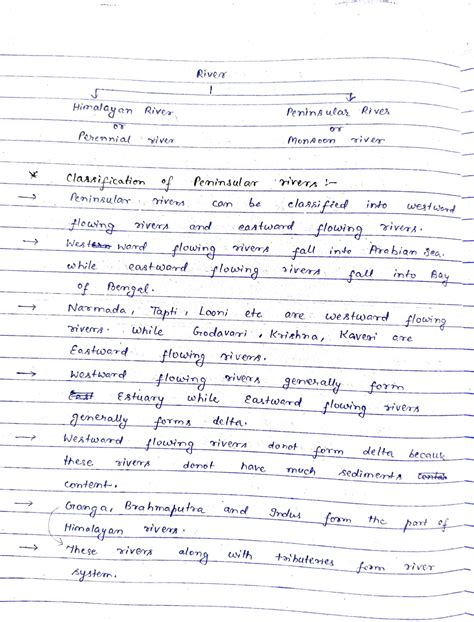 River
Himalayan River Peninsular River
or or
Perennial river Monsoon river
* Classification of Peninsular rivers :-
→ Peninsular rivers can be classified into westward
flowing rivers and eastward flowing rivers.
→ Westward flowing rivers fall into Arabian Sea.
while eastward flowing rivers fall into Bay
of Bengel.
→ Narmada, Tapti, Looni etc are westward flowing
rivers while Godavari, Krishna, Kaveri are
Eastward flowing rivers.
→ Westward flowing rivers generally form
East Estuary while Eastward flowing rivers
generally forms delta.
→ Westward flowing rivers donot form delta because
these rivers donot have much sediments
content.
→ Ganga, Brahmaputra and Indus form the part of
Himalayan rivers.
→ These rivers along with tributeries form river
system.